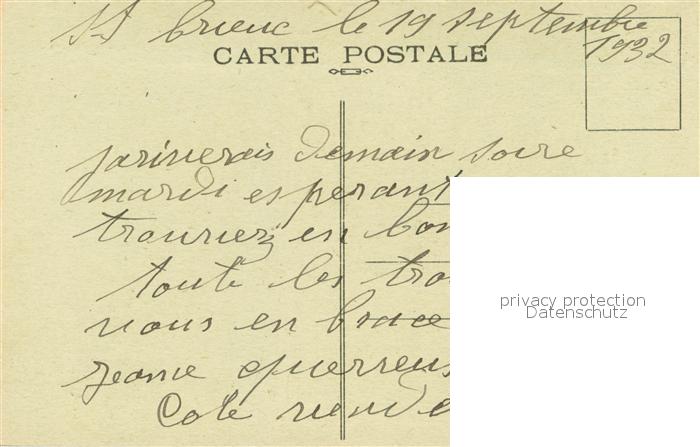 St brieuc le 19 septembre
1932
CARTE POSTALE
jariverais demain soire
mardi esperant
trouviez en bon
toute les tro
vous en brace
Cote
privacy protection
Datenschutz